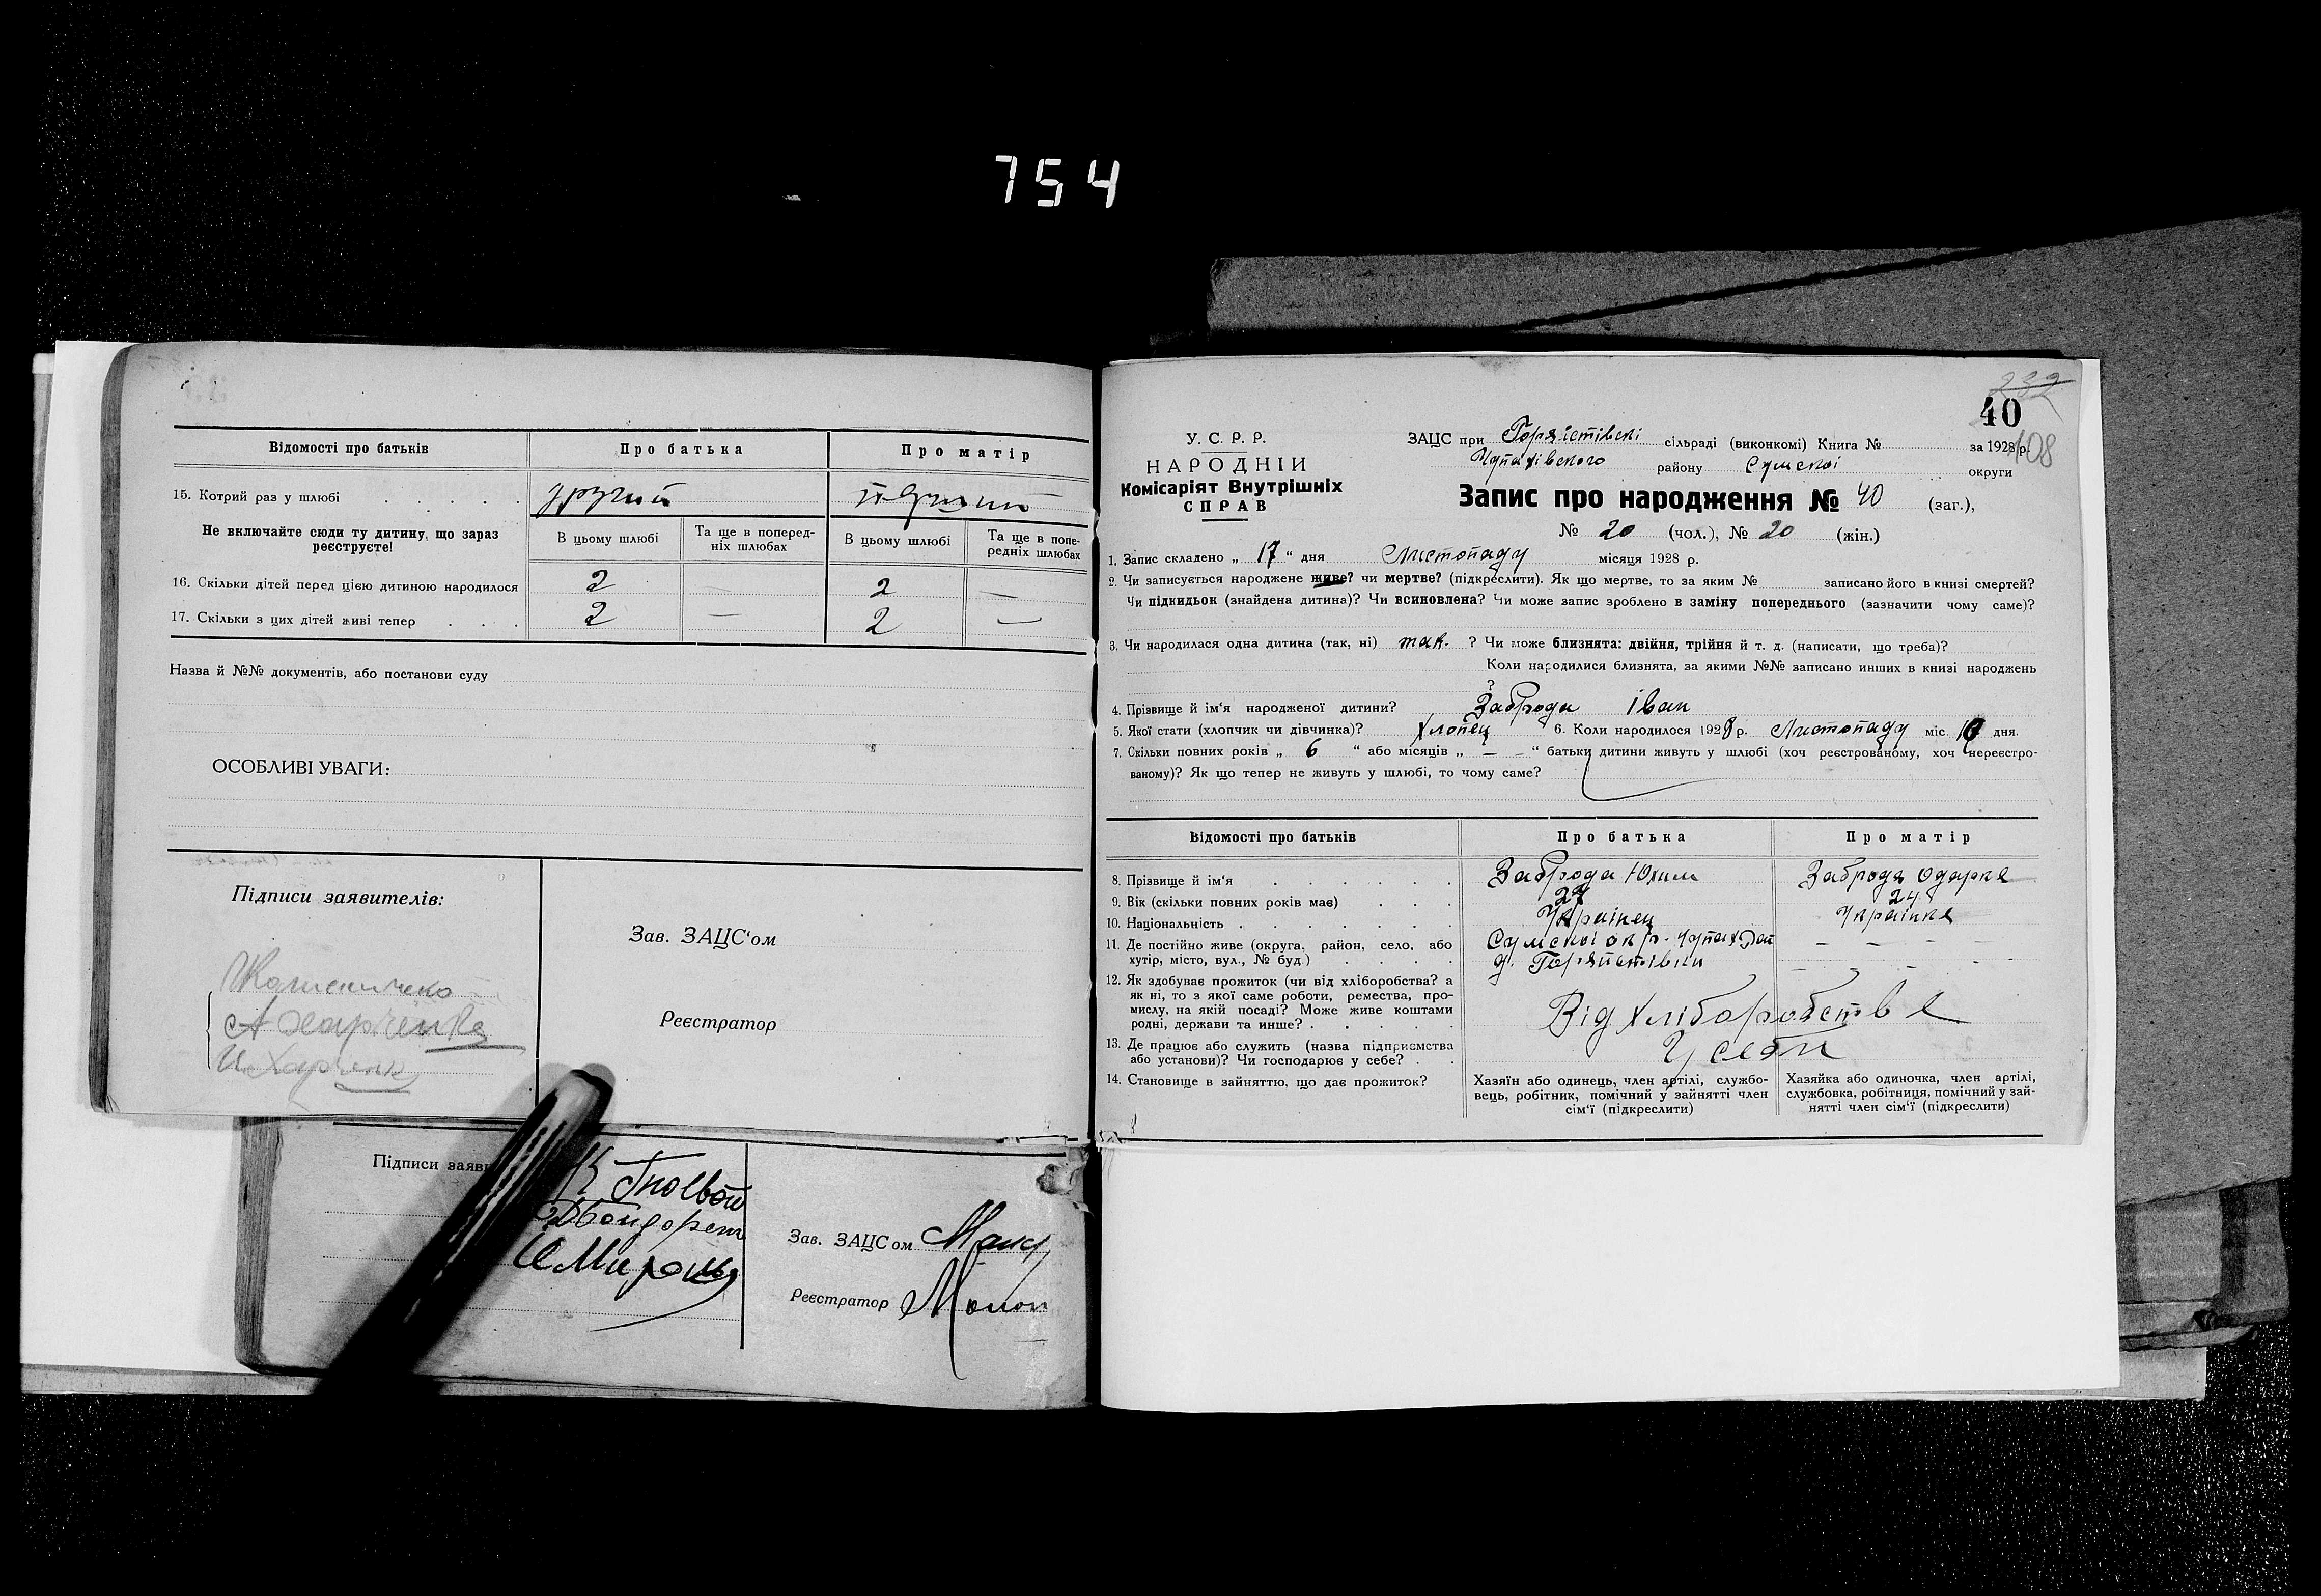 754
Відомості про батьків Про батька Про матір
15. Котрий раз у шлюбі . . . . . другий
Не включайте сюди ту дитину, що зараз реєструєте!
В цьому шлюбі Та ще в поперед-ніх шлюбах В цьому шлюбі Та ще в попе-редніх шлюбах
16. Скільки дітей перед цією дитиною народилося 2 — 2 —
17. Скільки з цих дітей живі тепер . . . 2 — 2 —
Назва й №№ документів, або постанови суду
ОСОБЛИВІ УВАГИ:
Підписи заявителів:
Зав. ЗАЦС‘ом
Реєстратор
А Харченко
И Харченк
Підписи заяв
Зав. ЗАЦСом
Реєстратор
232
40
108
У. С. Р. Р.
НАРОДНІЙ
Комісаріят Внутрішніх
СПРАВ
ЗАЦС при сільраді (виконкомі) Книга № за 1928 р.
Чупахівського району Сумської округи
Запис про народження № 40 (заг.),
№ 20 (чол.), № 20 (жін.)
1. Запис складено „ 17 “ дня Листопаду місяця 1928 р.
2. Чи записується народжене живе? чи мертве? (підкреслити). Як що мертве, то за яким № записано його в книзі смертей?
Чи підкидьок (знайдена дитина)? Чи всиновлена? Чи може запис зроблено в заміну попереднього (зазначити чому саме)?
3. Чи народилася одна дитина (так, ні) так. ? Чи може близнята: двійня, трійня й т. д. (написати, що треба)?
Коли народилися близнята, за якими №№ записано инших в книзі народжень
?
4. Прізвище й ім‘я народженої дитини? Заброда Іван
5. Якої стати (хлопчик чи дівчинка)? Хлопец 6. Коли народилося 1928 р. Листопаду міс. дня.
7. Скільки повних років „ 6 “ або місяців „ — “ батьки дитини живуть у шлюбі (хоч реєстрованому, хоч нереєстро-
ваному)? Як що тепер не живуть у шлюбі, то чому саме?
Відомості про батьків Про батька Про матір
8. Прізвище й ім‘я . . . . . . Заброда Юхим Заброда Одарка
9. Вік (скільки повних років має) . . . 27 24
10. Національність . . . . . . . Українец Українка
11. Де постійно живе (округа, район, село, або
хутір, місто, вул., № буд.) . . . .
12. Як здобуває прожиток (чи від хліборобства? а
як ні, то з якої саме роботи, ремества, про-
мислу, на якій посаді? Може живе коштами
родні, держави та инше? . . . . .
Від хліборобства
13. Де працює або служить (назва підприємства
або установи)? Чи господарює у себе? . .
У себе
14. Становище в зайняттю, що дає прожиток?
Хазяїн або одинець, член артілі, службо-
вець, робітник, помічний у зайнятті член
сім‘ї (підкреслити)
Хазяйка або одиночка, член артілі,
службовка, робітниця, помічний у зай-
нятті член сім‘ї (підкреслити)